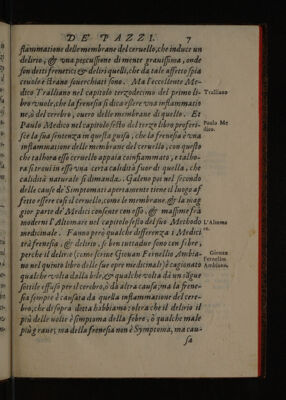 DE' PAZZI. 7
fiammatione delle membrane del ceruello, che induce un
delirio, & una percussione di mente grauissima, onde
son detti frenetici & deliri quelli, che da tale affetto spia
ceuole e strano souerchiati sono. Ma l'eccellente Me-
dico Tralliano nel capitolo terzodecimo del primo li-
bro vuole, che la frenesia si dica essere una infiammatio
ne, ò del cerebro, ouero delle membrane di quello. Et
Paulo Medico nel capitolo sesto del terzo libro proferi-
sce la sua sentenza in questa guisa, che la frenesia è una
infiammatione delle membrane del ceruello, con questo
che talhora esso ceruello appaia coinfiammato, e talho-
ra si troui in esso una certa calidità fuor di quella, che
calidità naturale si dimanda. Galeno poi nel secondo
delle cause de' Simptomati apertamente tiene il luogo af
fetto essere cosi il ceruello, come le membrane. & la mag
gior parte de' Medici consente con esso, & massime frà
moderni l'Altomare nel capitolo sesto del suo Methodo
medicinale. Fanno però qualche differenza i Medici
trà frenesia, & delirio, se ben tuttadue sono con febre,
perche il delirio (come scriue Giouan Fernellio Ambia-
no nel quinto libro delle sue opre medicinali) è cagionato
qualche volta dalla bile, & qualche volta dà un sãgue
sottile effuso per il cerebro, ò dà altra causa; ma la frene-
sia sempre è causata da quella infiammatione del cere-
bro, che di sopra ditta habbiamo: oltra che il delirio il
più delle volte è simptoma della febre, ò qualche male
più graue; ma della frenesia non è Symptoma, ma cau-
sa
Tralliano
Paulo Me
dico.
L'Altoma
re.
Giouan
Fernellio
Ambiano.